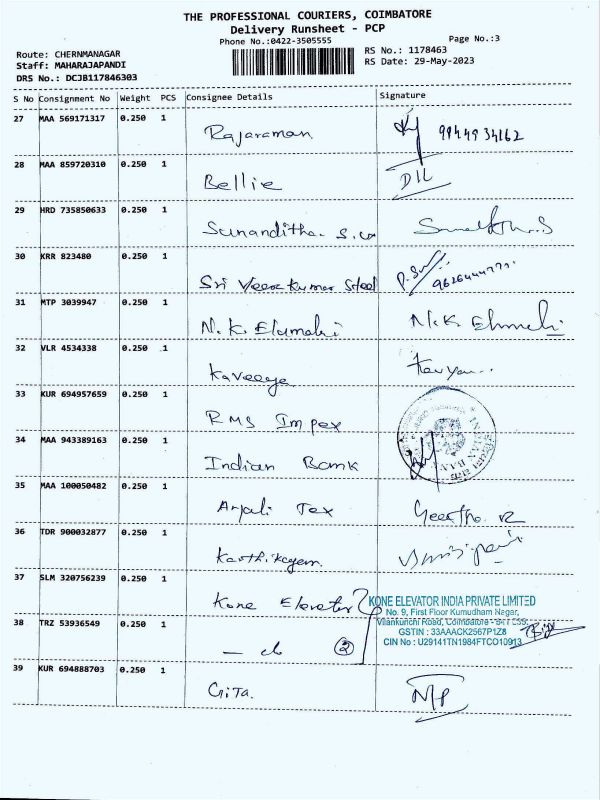 THE PROFESSIONAL COURIERS, COIMBATORE
Delivery Runsheet - PCP
Phone No.:0422-3505555
Page No.:3
Route: CHERNMANAGAR
RS No.: 1178463
Staff: MAHARAJAPANDI
RS Date: 29-May-2023
DRS No.: DCJB117846303
S No Consignment No Weight PCS Consignee Details Signature
27 MAA 569171317 0.250 1 Rajaraman 9944934162
28 MAA 859720310 0.250 1 Bellie DIL
29 HRD 735850633 0.250 1 Sunanditha. S.
30 KRR 823480 0.250 1 Sri Veerakumar Steel
31 MTP 3039947 0.250 1 N.K. Elamaki N.K.
32 VLR 4534338 0.250 1 Kaveeya
33 KUR 694957659 0.250 1 RMS Impex
34 MAA 943389163 0.250 1 Indian Bank
35 MAA 100050482 0.250 1 Anjali Tex
36 TDR 900032877 0.250 1 Karthikeyan.
37 SLM 320756239 0.250 1 Kone Elevator
KONE ELEVATOR INDIA PRIVATE LIMITED
No. 9, First Floor Kumudham Nagar,
Vilankurichi Road, Coimbatore - 641 035.
38 TRZ 53936549 0.250 1 — do 2
GSTIN : 33AAACK2567P1Z8
CIN No : U29141TN1984FTC010913
39 KUR 694888703 0.250 1 Gita.